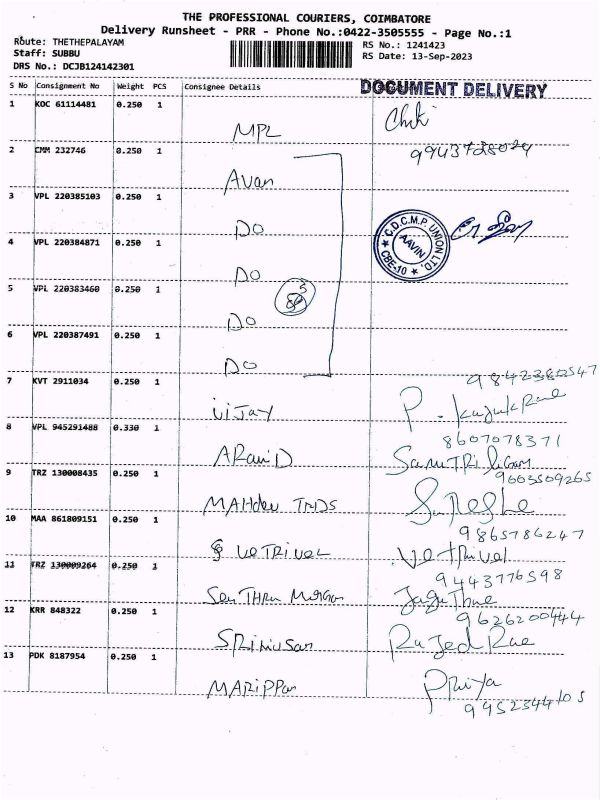 THE PROFESSIONAL COURIERS, COIMBATORE
Delivery Runsheet - PRR - Phone No.:0422-3505555 - Page No.:1
Route: THETHEPALAYAM
Staff: SUBBU
DRS No.: DCJB124142301
RS No.: 1241423
RS Date: 13-Sep-2023
S No Consignment No Weight PCS Consignee Details
DOCUMENT DELIVERY
1 KOC 61114481 0.250 1
MPL
2 CMM 232746 0.250 1
Avan
3 VPL 220385103 0.250 1
DO
C.D.C.M.P. UNION LTD.
AAVIN
CBE-10
4 VPL 220384871 0.250 1
DO
5 VPL 220383460 0.250 1
DO
6 VPL 220387491 0.250 1
DO
7 KVT 2911034 0.250 1
9842380547
VIJAY
8 VPL 945291488 0.330 1
8607078371
ARaviD
9 TRZ 130008435 0.250 1
9603509265
MAHdev TMDS
10 MAA 861809151 0.250 1
9865786247
VETRIVEL Vetrivel
11 TRZ 130009264 0.250 1
9443776598
12 KRR 848322 0.250 1
9626200444
13 PDK 8187954 0.250 1
MARIPPan Priya